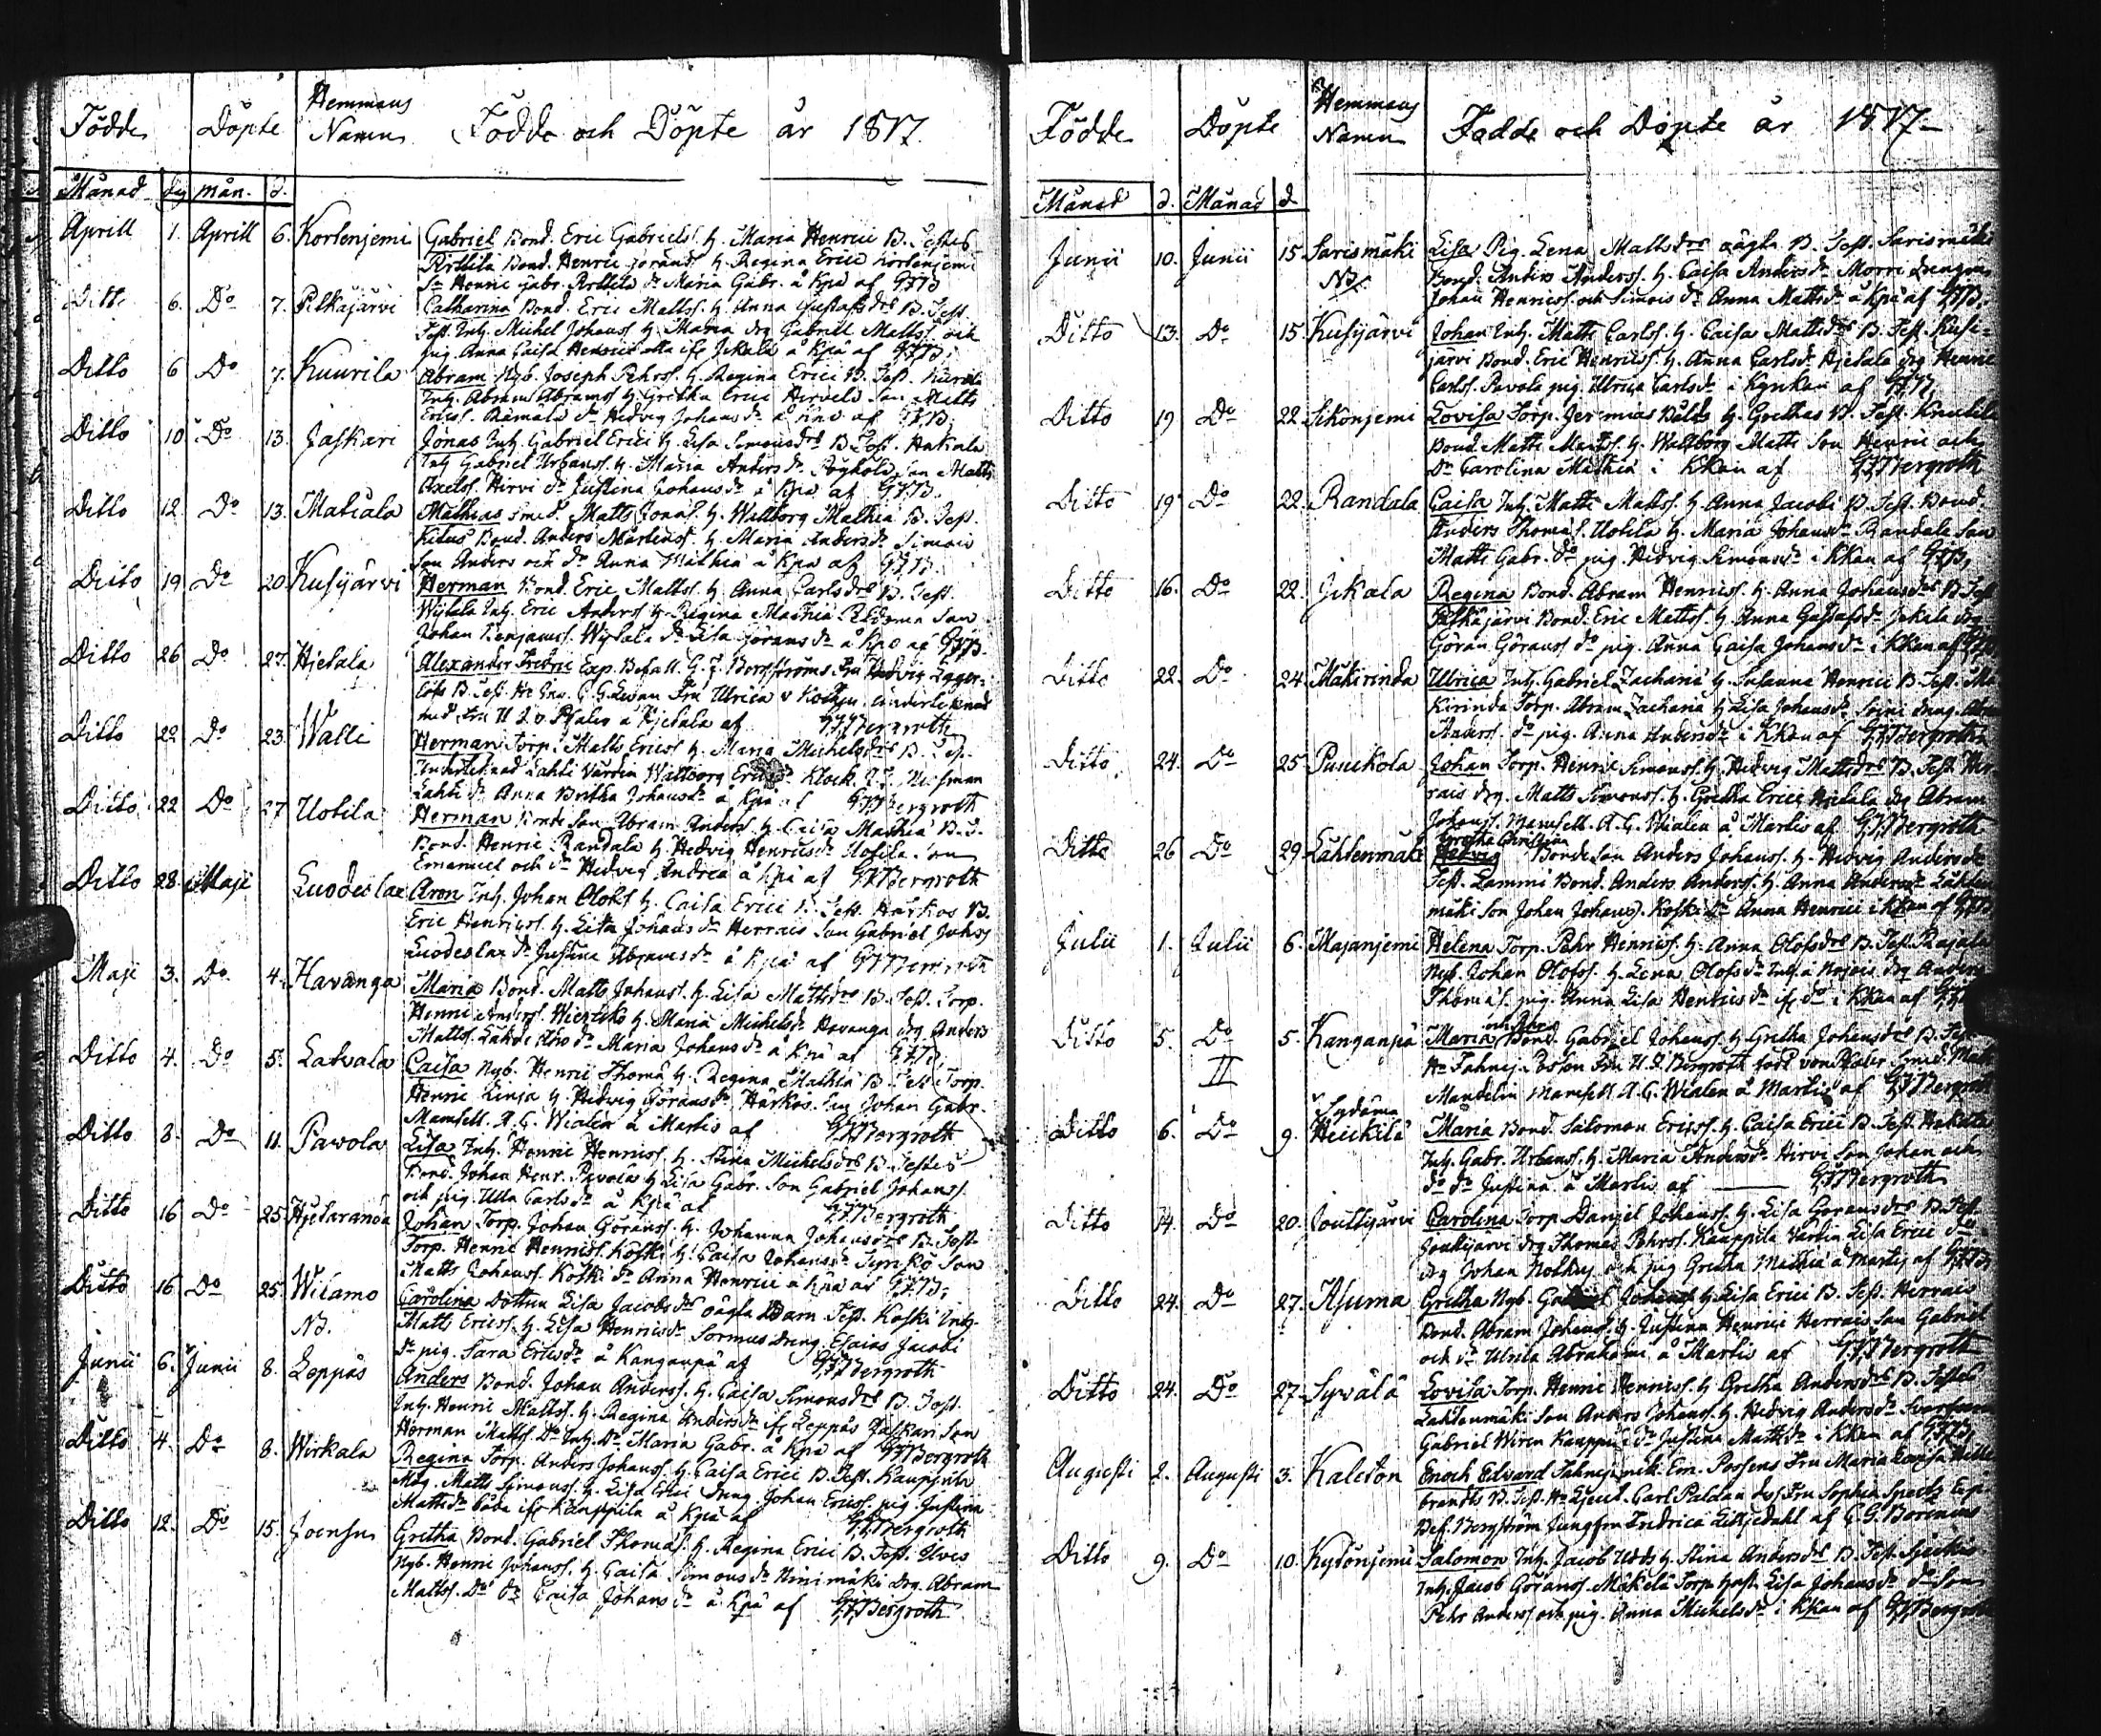 Födde Döpte Hemmans Namn Födde och Döpte år 1817.
Månad dag mån. d.
Aprill 1. Aprill 6. Kortenjemi Gabriel Bond. Eric Gabriels. H. Maria Henrici B. Testes
Pirttila Bond. Henric Jörans H. Regina Erici Kortenjemi
Sn Henric Gabr. Pirttila Dr Maria Gabr. å Kpä af GFB
Ditto 6. Do 7. Pitkäjärvi Catharina Bond. Eric Matts. H. Anna Gustafsdr B. Test.
Inh. Michel Johans. H. Maria drg Gabriel Matts. och
pig. Anna Caisa Henrici alla ifr Jikala å Kpä af GFB.
Ditto 6 Do 7. Kuurila Abram Nyb. Joseph Pehrs. H. Regina Erici B. Test. Kurila
Inh. Abram Abrams H. Gretha Erici Hirvelä Son Matts
Erics. Rämälä Dr Hedvig Johans dr å Kpä af GFB.
Ditto 10 Do 13. Jaskari Jonas Inh. Gabriel Erici H. Lisa Simonsdr B. Test. Hakala
Inh Gabriel Urbans. H. Maria Anders dr Son Matts
Axels. Hirvi Dr Justina Johans dr å Kpä af GFB.
Ditto 12. Do 13. Matiala Mathias smed. Matts Jonas. H. Wallborg Mathiæ B. Test.
Bond. Anders Mårtens. H. Maria Anders dr Simois
Son Anders och Dr Anna Mathiæ å Kpä af GFB.
Ditto 19 Do 20 Kusijärvi Herman Bond. Eric Matts. H. Anna Carlsdr B. Test.
Inh. Eric Anders H. Regina Mathiæ Son
Johan Benjams. Dr Lisa Jörans dr å Kpä af GFB.
Ditto 26 Do 27. Hjetala Alexander Fredric Exp. Befall. G. F. Bergströms Fru Hedvig Lager-
löfs B. Test. Hr G. Fru Ulrica v undertecknad
med Fru U. å Hjetala af GFBergroth
Ditto 22 Do 23. Walli Herman Torp. Matts Erics H. Maria Michelsdr B. Test.
Undertecknad Lahti Värdin Wallborg Erics dr Klock.
Lahti Dr Anna Britha Johansdr å Kpä af GFBergroth
Ditto 22 Do 27 Uotila Herman Bonde Son Abram Anders H. Caisa Mathiæ B. T.
Bond. Henric Randala H. Hedvig Henricsdr Uotila Son
Emanuel och Dr Hedvig Andreæ å Kpä af GFBergroth
Ditto 28 Maji Luodeslax Aron Inh. Johan Olofs H. Caisa Erici B. Test. Härkös B.
Eric Henrics. H. Lisa Johans dr Herrais Son Gabriel Johs
Luodeslax Dr Justina Abrams dr å Kpä af GFBergroth
Maji 3. Do 4. Havanga Maria Bond. Matts Johans. H. Lisa Mattsdr B. Test. Torp.
Henric Anders. H. Maria Michels dr Havanga drg Anders
Matts. Dr Maria Johans dr å Kpä af GFB
Ditto 4. Do 5. Latvala Caisa Nyb. Henric Thomæ H. Regina Mathiæ B. Test. Torp.
Henric Linja H. Hedvig Görans dr Härkös. Inh. Johan Gabr.
Mamsell. A. C. Wialen å Martis af GFBergroth
Ditto 8. Do 11. Pavola Lisa Inh. Henric Henrics H. Stina Michelsdr B. Testes
Bond. Johan Henr. Pavola H. Lisa Gabr. Son Gabriel Johans.
och pig. Ulla Carls dr å Kpä af GFBergroth
Ditto 16 Do 25. Hjetaranda Johan Torp. Johan Görans. H. Johanna Johansdr B. Test.
Torp. Henric Henrics. Koski H. Caisa Johansdr Son
Matts Johans. Koski Dr Anna Henrici å Kpä af GFB.
Ditto 16 Do 25. Wilamo Carolina Dottern Lisa Jacobs dr oägta Barn Test. Koski Inh.
NB. Matts Erics. H. Lisa Henrics dr Sormus dreng. Esaias Jacobi
Dr pig. Sara Ericsdr å Kangaspä af GFBergroth
Junii 6. Junii 8. Leppäs Anders Bond. Johan Anders. H. Caisa Simonsdr B. Test.
Inh. Henric Matts. H. Regina Anders dr if Leppäs Jaskari Son
Herman Matts. Do Inh. Dr Maria Gabr. å Kpä af GFBergroth
Ditto 4. Do 8. Wirkala Regina Torp. Anders Johans H. Caisa Erici B. Test. Kauppila
Matts Simons. H. Lisa Erici dreng. Johan Erics. pig. Justina
Mattsdr båda ifr Kauppila å Kpä af GFBergroth
Ditto 12. Do 15. Joensu Gretha Bond. Gabriel Thomæs. H. Regina Erici B. Test. Ilves
Nyb. Henric Johans. H. Caisa Simons dr Ninimäki drg. Abram
Matts. Do Dr Caisa Johans dr å Kpä af GFBergroth
Födde Döpte Hemmans Namn Födde och Döpte år 1817
Månad d. Månad d.
Junii 10. Junii 15 Sarismäki Lisa Pig. Lena Mattsdrs oägta B. Test. Sarismäki
NB. Bond. Anders Anders. H. Caisa Anders dr Morri drengen
Johan Henrics. och Simois Dr Anna Mattsdr å Kpä af GFB.
Ditto 13. Do 15. Kusijärvi Johan Inh. Matts Carls. H. Caisa Mattsdr B. Test. Kusi-
järvi Bond. Eric Henrics. H. Anna Carlsdr Hjetala drg Henric
Carls. Pavola pig. Ulrica Carlsdr i Kyrkan af GFB.
Ditto 19 Do 22. Sikonjemi Lovisa Torp. Jeremias H. Grethas B. Test. Knuutila
Bond. Matts Matts. H. Wallborg Matts Son Henric och
Dr Carolina Mathiæ i Kkan af GFBergroth
Ditto 19 Do 22. Randala Caisa Inh. Matts Matts. H. Anna Jacobi B. Test. Bond.
Anders Thomæ S. Uotila H. Maria Johansdr Randala Son
Matts Gabr. Do pig. Hedvig Simonsdr i Kkan af GFB,
Ditto 16. Do 22. Jikala Regina Bond. Abram Henrics. H. Anna Johansdr B. Test
Pitkäjärvi Bond. Eric Matts. H. Anna Gustafsdr Jikala drg
Göran Görans Do pig. Anna Caisa Johans dr i Kkan af GFB
Ditto 22. Do 24. Mäkirinda Ulrica Inh. Gabriel Zachariæ H. Susanna Henrici B. Test. Mä-
kirinda Torp. Abram Zachariæ H. Lisa Johansdr dreng. Abram
Anders. Do pig. Anna Andersdr i Kkan af GFBergroth
Ditto 24. Do 25 Puuckola Johan Torp. Henric Simons. H. Hedvig Mattsdr B. Test. Her-
rais drg. Matts Simons. H. Gretha Erici Hjetala drg Abram
Johans. Mamsell. A. C. Wialen å Martis af GFBergroth
Gretha Christina
Ditto 26 Do 29 Lahtenmäki Hedvig Bonde Son Anders Johans. H. Hedvig Andersdr
Test. Lammi Bond. Anders Anders. H. Anna Andersdr Lahten
mäki Son Johan Johans. Koski Dr Anna Henrici i Kkan af GFB
Julii 1. Julii 6. Majanjemi Helena Torp. Pehr Henrics. H. Anna Olofsdr B. Test. Rajala
Nyb. Johan Olofs. H. Lena Olofs dr Inh. drg Anders
Thomæ S. pig. Anna Lisa Henrics dr if do i Kkan af GFB
Ditto 5. Do 5. Kanganpä Maria Bond. Gabriel Johans. H. Gretha Johansdr B. Test
II Hr Fähnr. Possen Fru U. Bergroth född von Smed. Matts
Mandelin Mamsell A. C. Wialen å Martis af GFBergroth
Sydänm
Ditto 6. Do 9. Heickilä Maria Bond. Salomon Erics. H. Caisa Erici B. Test. Hakala
Inh. Gabr. Urbans. H. Maria Andersdr Hirvi Son Johan och
do dr Justina å Martis af GFBergroth
Ditto 14. Do 20. Jouttijärvi Carolina Torp Daniel Johans. H. Lisa Göransdr B. Test.
Joutijärvi drg Thomas Pehrs. Kauppila Värdin Lisa Erici Do
drg Johan och pig Gretha Mathiæ å Martis af GFB
Ditto 24. Do 27. Asuma Gretha Nyb. Gabriel Johans. H. Lisa Erici B. Test. Herrais
Bond. Abram Johans. H. Justina Henrici Herrais Son Gabriel
och Dr Ulrica Abrahami å Martis af GFBergroth
Ditto 24. Do 27. Syvälä Lovisa Torp. Henric Henrics. H. Gretha Andersdr B. Testes
Lahtenmäki Son Anders Johans. H. Hedvig Andersdr
Gabriel Wiren Kauppila Dr Justina Mattsdr i Kkan af GFB
Augusti 2. Augusti 3. Kaleton Enoch Edvard Fähnr. Em. Possens Fru Maria Lovisa Hilde-
brandts B. Test. Hr Carl Paldan dess Fru Sophia Exp.
Bef. Bergström Jungfru Fredrica Liljedahl af C. G. Borenius
Ditto 9. Do 10. Kydönjemi Salomon Inh. Jacob H. Stina Andersdr B. Test.
Inh. Jacob Görans. Mäkelä Torp. Lisa Johans dr do Son
Pehr Anders. och pig. Anna Michels dr i Kkan af GFBergroth